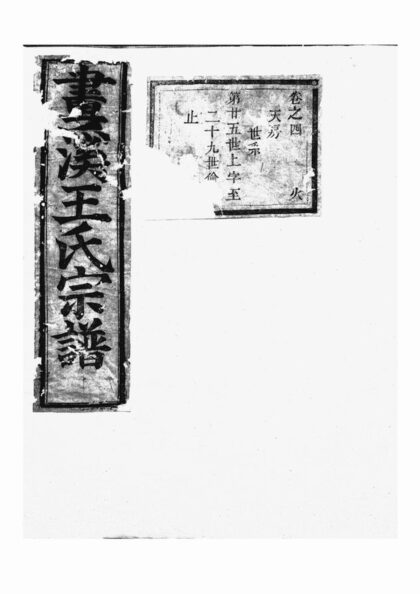 畫溪王氏宗譜
卷之四 火
天房
世系
第廿五世上字至
二十九世
止